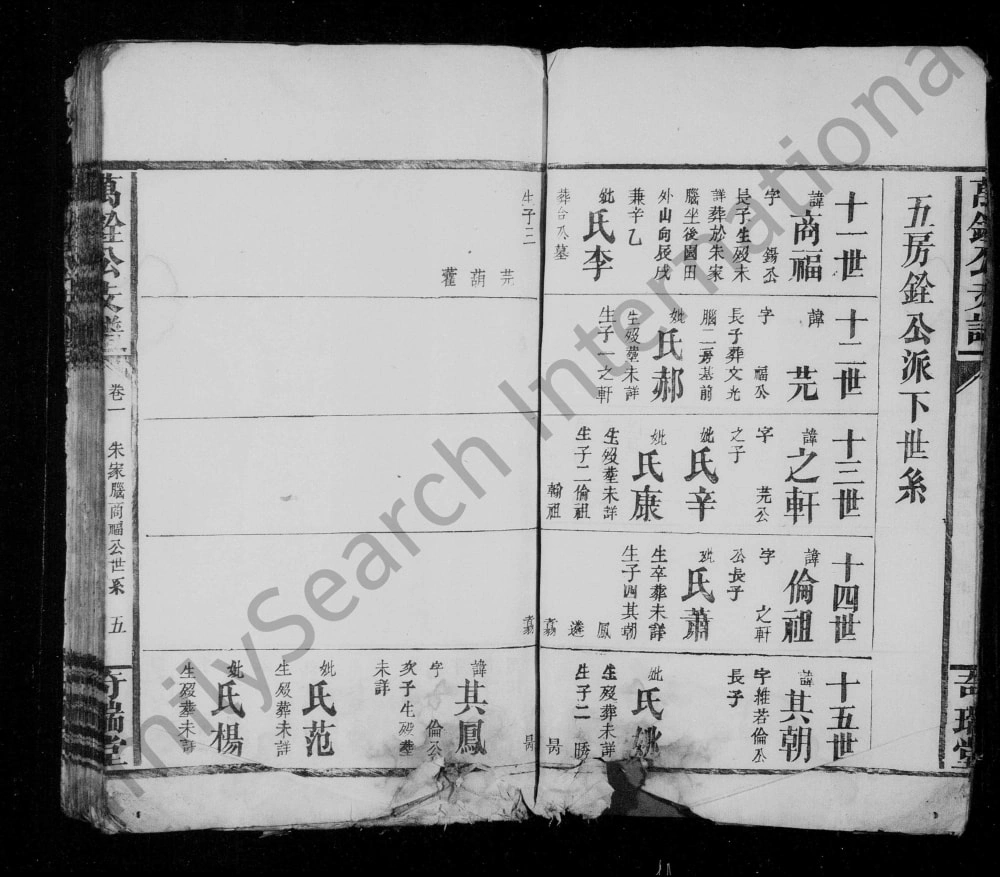 五房銓公派下世系
十一世
諱商福
字 錫公
長子生歿未
詳葬於朱家
腦坐後園田
外山向辰戌
兼辛乙
妣氏李
葬合公墓
生子三
芫
葫
藿
十二世
諱芫
字 福公
長子葬文光
腦二房基前
妣氏郝
生歿塟未詳
生子一之軒
十三世
諱之軒
字 芫公
之子
妣氏辛
妣氏康
生歿塟未詳
生子二倫祖
翰祖
十四世
諱倫祖
字 之軒
公長子
妣氏蕭
生卒葬未詳
生子四其朝
鳳
遴
翥
十五世
諱其朝
字稚若倫公
長子
妣氏
生歿葬未詳
生子二
諱其鳳
字 倫公
次子生歿塟
未詳
妣氏范
生歿葬未詳
妣氏楊
生歿塟未詳
卷一
朱家腦商福公世系
五
FamilySearch International